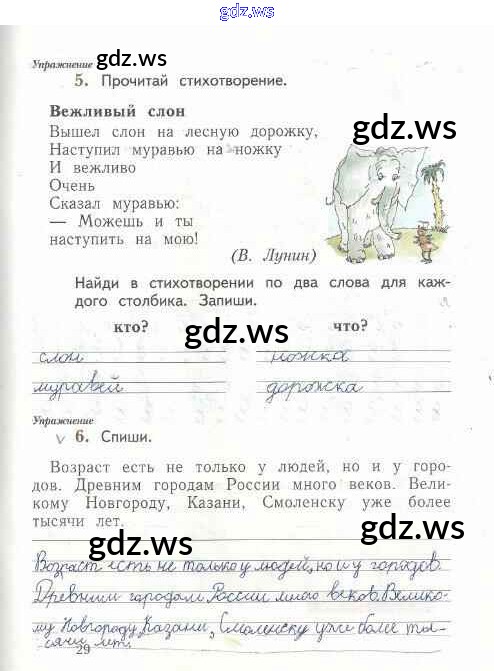 gdz.ws
Упражнение
gdz.ws
gdz.ws
5. Прочитай стихотворение.
Вежливый слон
Вышел слон на лесную дорожку,
gdz.ws
Наступил муравью на ножку
И вежливо
Очень
Сказал муравью:
— Можешь и ты
наступить на мою!
(В. Лунин)
Найди в стихотворении по два слова для каж-
дого столбика. Запиши.
кто? что?
gdz.ws
слон ножка
муравей дорожка
Упражнение
6. Спиши.
Возраст есть не только у людей, но и у горо-
дов. Древним городам России много веков. Вели-
кому Новгороду, Казани, Смоленску уже более
тысячи лет.
gdz.ws
gdz.ws
Возраст есть не только у людей, но и у городов.
Древним городам России много веков. Велико-
му Новгороду, Казани, Смоленску уже более ты-
сячи лет.
29
gdz.ws
gdz.ws